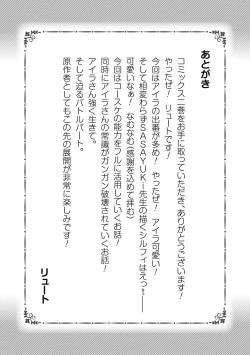 あとがき
コミックス二巻をお手に取っていただき、ありがとうございます！
やったぜ！　リュートです！
今回はアイラの出番が多め！　やったぜ！　アイラ可愛い！
そして相変わらずSASAYUKi先生の描くシルフィはえっ――
可愛いなぁ！　なむなむ（感謝を込めて拝む）
今回はコースケの能力をフルに活用していくお話！
同時にアイラさんの常識がガンガン破壊されていくお話！
アイラさん強く生きて。
そして迫るバトルパート。
原作者としてもこの先の展開が非常に楽しみです！
リュート